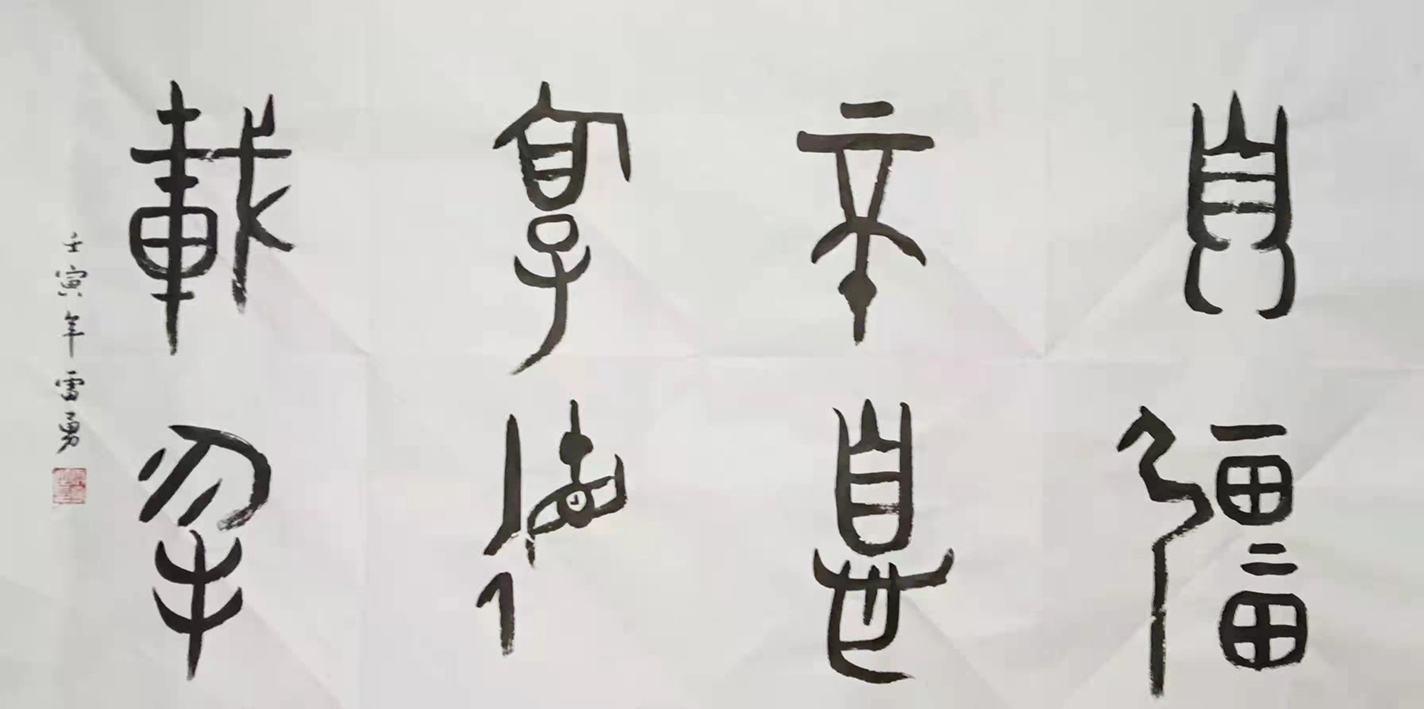 自彊
不息
厚德
載物
壬寅年雷勇